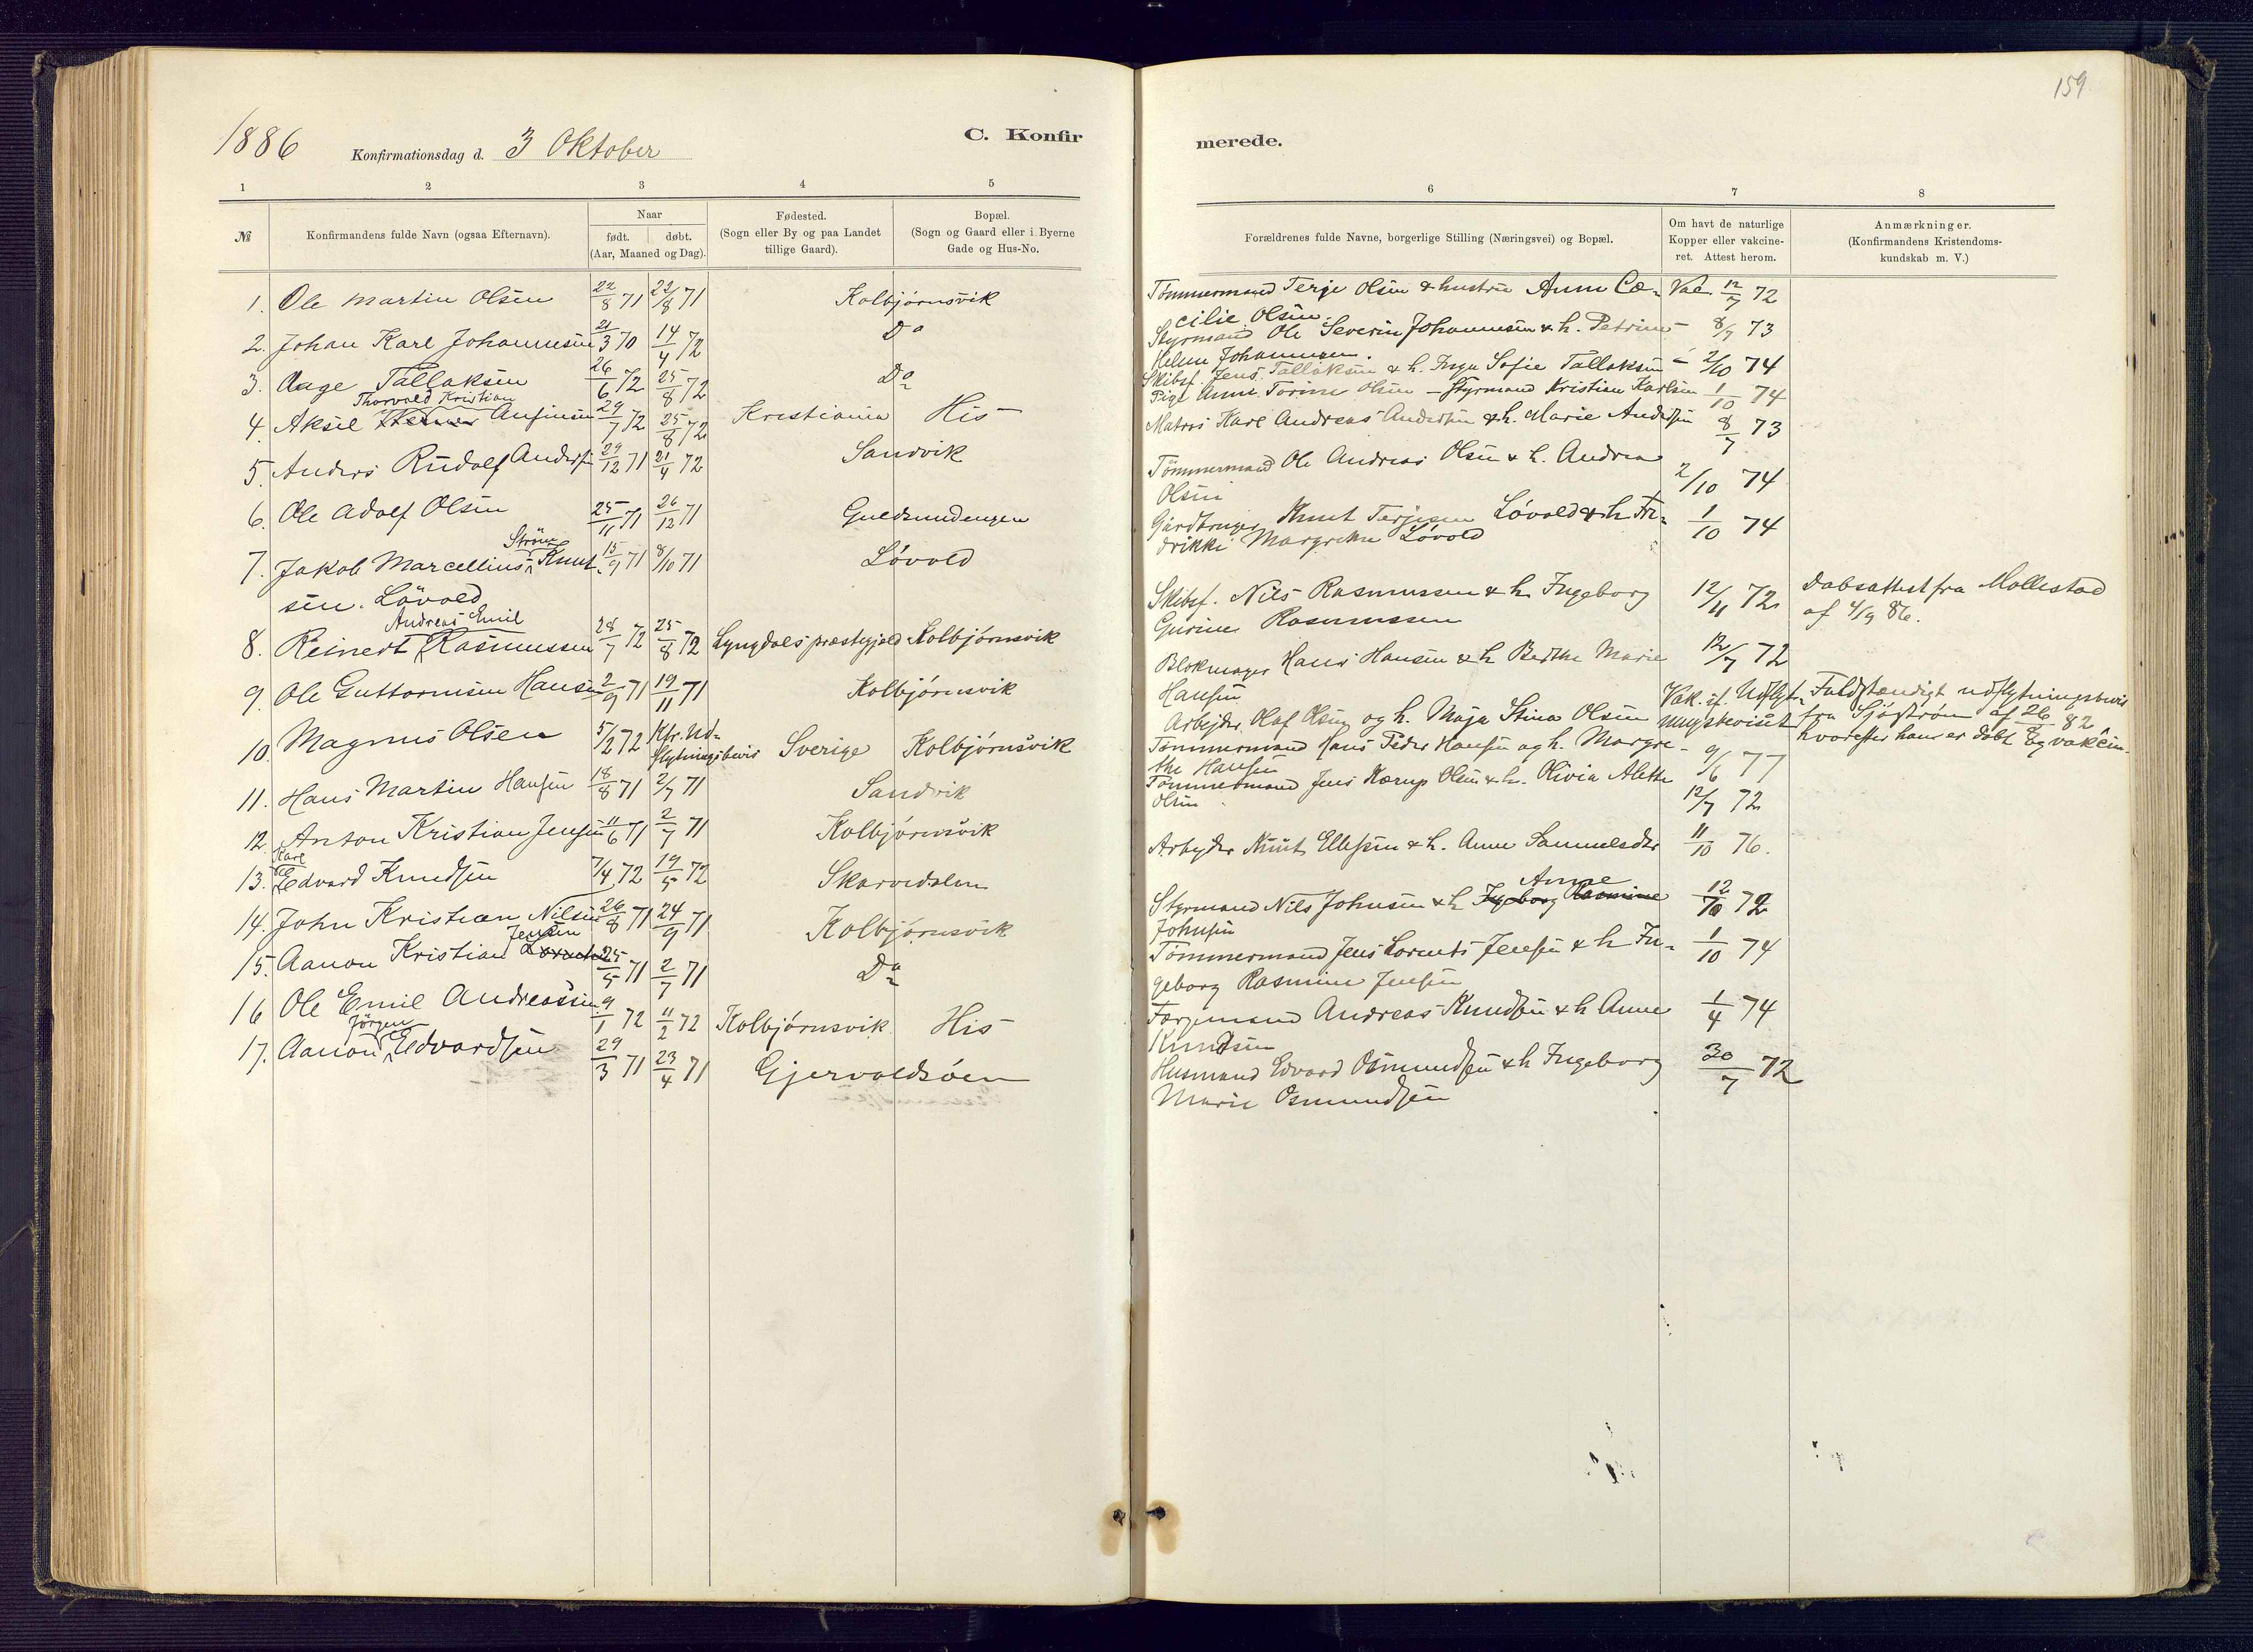 1886
Konfirmationsdag d. 3 Oktober
C. Konfir
1 2 3 4 5
№
Konfirmandens fulde Navn (ogsaa Efternavn).
Naar
født. døbt.
(Aar, Maaned og Dag).
Fødested.
(Sogn eller By og paa Landet
tillige Gaard).
Bopæl.
(Sogn og Gaard eller i Byerne
Gade og Hus-No.
1. Ole Martin Olsen 22/8 71 22/8 71 Kolbjörnsvik
2. Johan Karl Johannesen 21/3 70 14/4 72 Do
3. Aage Tallaksen 26/6 72 25/8 72 Do
Thorvald Kristian
4. Aksel Ansinsen 29/7 72 25/8 72 Kristiania His
5. Anders Rudolf Andersen 29/12 71 21/4 72 Sandvik
6. Ole Adolf Olsen 25/11 71 26/12 71 Guldsmedengen
Ström
7. Jakob Marcellius Knut- 15/9 71 8/10 71 Lövold
sen. Lövold
Andreas Emil
8. Reinert Rasmussen 28/7 72 25/8 72 Lyngdals præstegjeld Kolbjörnsvik
9. Ole Guttormsen Hansen 2/9 71 19/11 71 Kolbjörnsvik
10. Magnus Olsen 5/2 72 Kfr. Ud-
flytningsbevis Sverige Kolbjörnsvik
11. Hans Martin Hansen 18/8 71 2/7 71 Sandvik
12. Anton Kristian Jensen 11/6 71 2/7 71 Kolbjörnsvik
Karl
13. Edvard Knudsen 7/4 72 19/5 72 Skarvedalen
14. John Kristian Nilsen 26/8 71 24/9 71 Kolbjörnsvik
Jensen
15. Aanon Kristian Lorents 25/5 71 2/7 71 Do
16 Ole Emil Andreassen 9/1 72 11/2 72 Kolbjörnsvik His
Jörgen
17. Aanon Edvardsen 29/3 71 23/4 71 Gjervoldsöen
159
merede.
6 7 8
Forældrenes fulde Navne, borgerlige Stilling (Næringsvei) og Bopæl.
Om havt de naturlige
Kopper eller vakcine-
ret. Attest herom.
Anmærkninger.
(Konfirmandens Kristendoms-
kundskab m. V.)
Tömmermand Terje Olsen & hustru Anne Cæ- Vac. 12/7 72
cilie Olsen.
Styrmand Ole Severin Johannesen & h. Petrine - 8/9 73
Helene Johannesen.
Skibsf. Jens Tallaksen & h. Inga Sofie Tallaksen - 2/10 74
Pige Anne Torine Olsen - Styrmand Kristian Karlsen 1/10 74
Matros Karl Andreas Andersen & h. Marie Andersen 8/7 73
Tömmermand Ole Andreas Olsen & h. Andrea
Olsen 2/10 74
Gårdbruger Knut Terjesen Lövold & h. Fre- 1/10 74
drikke Margrethe Lövold
Skibsf. Nils Rasmussen & h. Ingeborg 12/11 72 Dåbsattest fra Mollestad
Gurine Rasmussen af 4/9 86.
Blokmager Hans Hansen & h Berthe Marie 12/7 72
Hansen
Arbejder Olaf Olsen og h. Maja Stina Olsen Vak. if. Udflyt-
ningsbeviset
Fuldstændigt udflytningsbevis
fra Sjöström af 26/8 82
hvorefter han er döbt og vakcin.
Tömmermand Hans Peder Hansen og h. Margre- 9/6 77
the Hansen
Tömmermand Jens Kærup Olsen & h. Olivia Alette 12/7 72
Olsen
Arbejder Knut Ellefsen & h. Anne Samuelsdtr 11/10 76.
Anne
Styrmand Nils Johnsen & h Ingeborg Rasmine 12/10 72
Johnsen
Tömmermand Jens Lorents Jensen & h In- 1/10 74
geborg Rasmine Jensen
Færgemand Andreas Knudsen & h Anne 1/4 74
Knudsen
Husmand Edvard Osmundsen & h Ingeborg 30/7 72
Marie Osmundsen